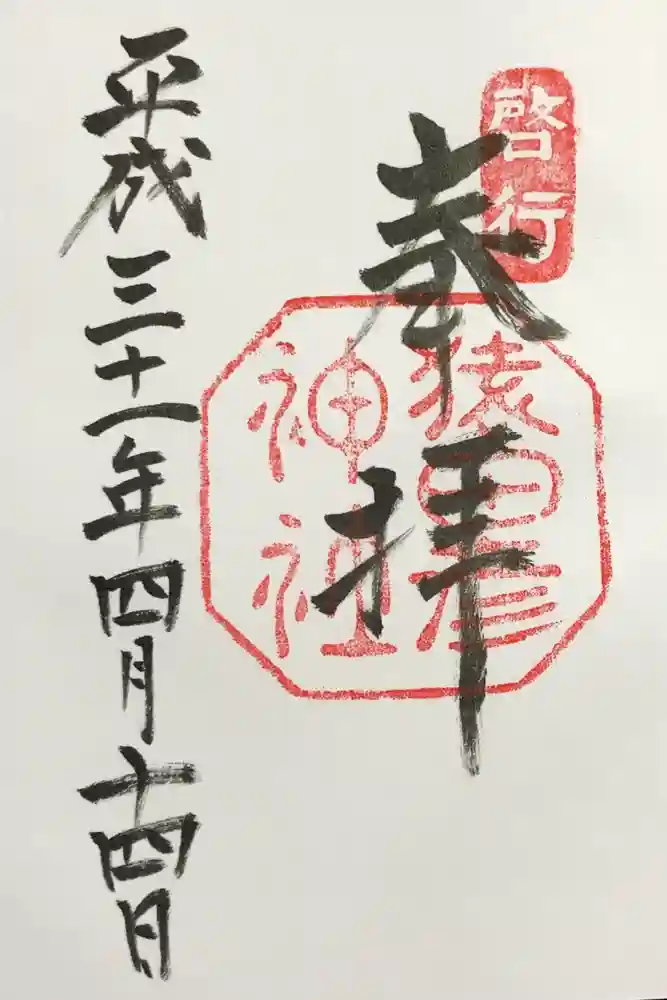 啓行
奉拝
猿田彦
神社
平成三十一年四月十四日